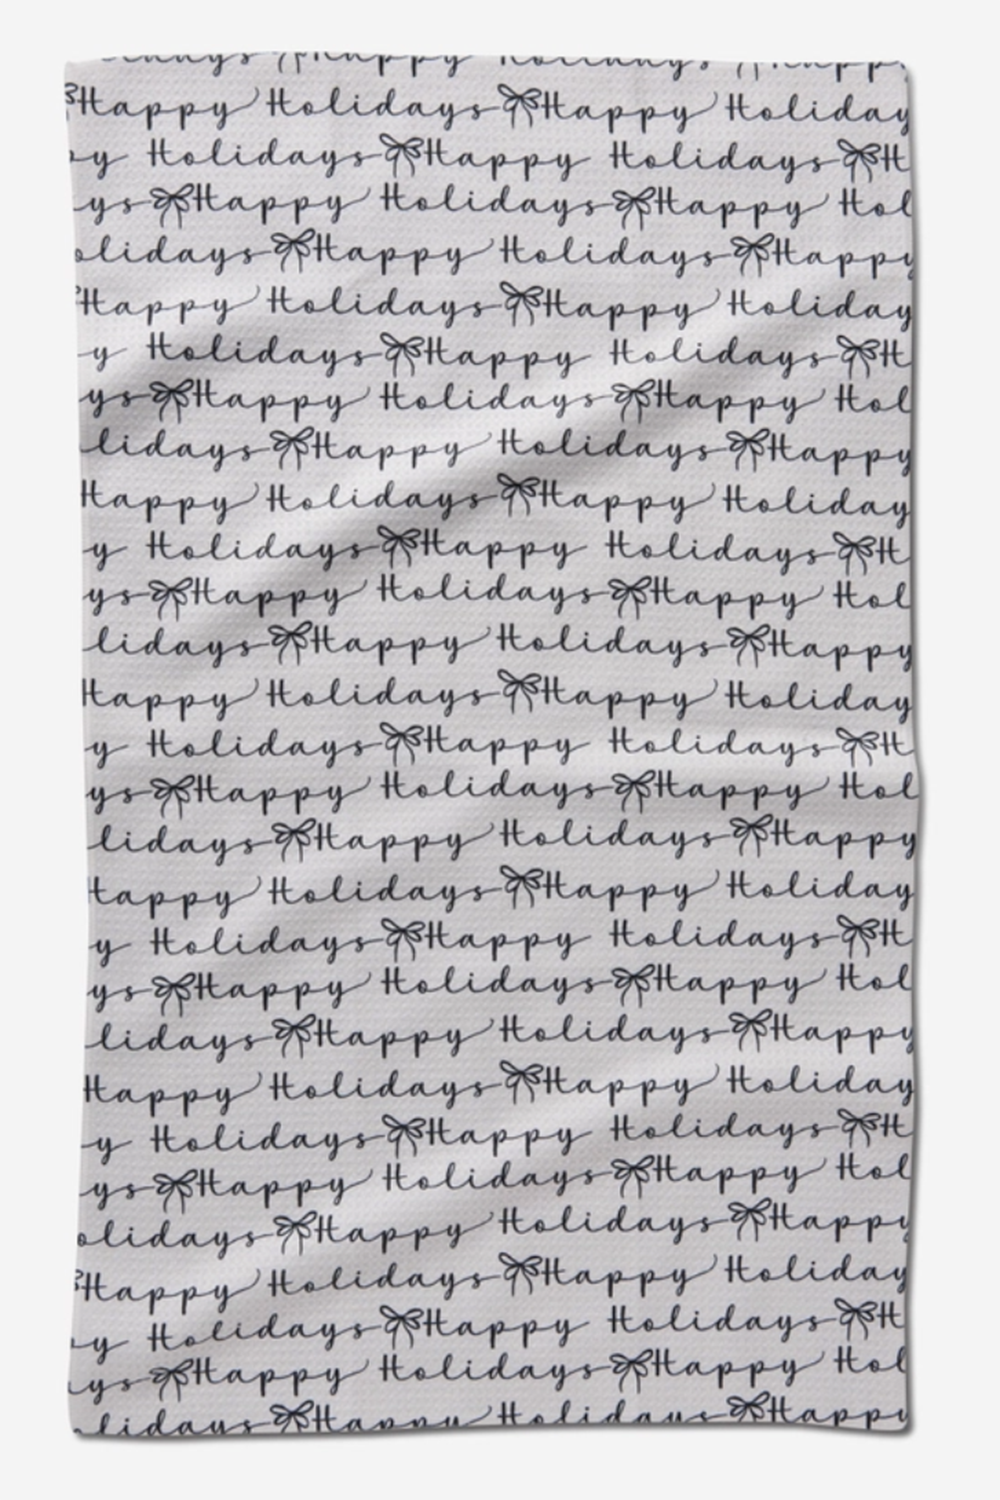 Happy Holidays Happy Holiday
y Holidays Happy Holidays H
ys Happy Holidays Happy Hol
olidays Happy Holidays Happy
Happy Holidays Happy Holiday
y Holidays Happy Holidays H
ys Happy Holidays Happy Hol
lidays Happy Holidays Happy
Happy Holidays Happy Holiday
y Holidays Happy Holidays H
ys Happy Holidays Happy Hol
lidays Happy Holidays Happy
Happy Holidays Happy Holiday
y Holidays Happy Holidays H
ys Happy Holidays Happy Hol
lidays Happy Holidays Happy
Happy Holidays Happy Holiday
y Holidays Happy Holidays H
ys Happy Holidays Happy Hol
lidays Happy Holidays Happy
Happy Holidays Happy Holiday
y Holidays Happy Holidays H
ys Happy Holidays Happy Hol
olidays Happy Holidays Happy
Happy Holidays Happy Holiday
py Holidays Happy Holidays H
ys Happy Holidays Happy Hol
lidays Happy Holidays Happy